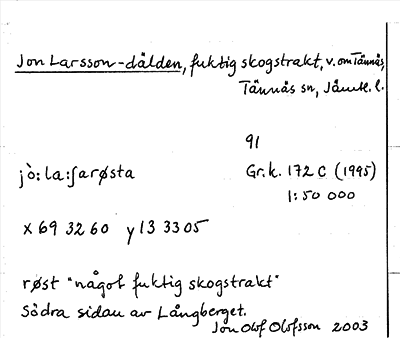 Jon Larsson-dålden, fuktig skogstrakt, v. om Tännås,
Tännås sn, Jämtl. l.
91
jò:la:ʃarøsta
Gr.k. 172 C (1995)
1:50 000
x 69 32 60 y 13 33 05
røst "något fuktig skogstrakt"
Södra sidan av Långberget.
Jon Olof Olofsson 2003